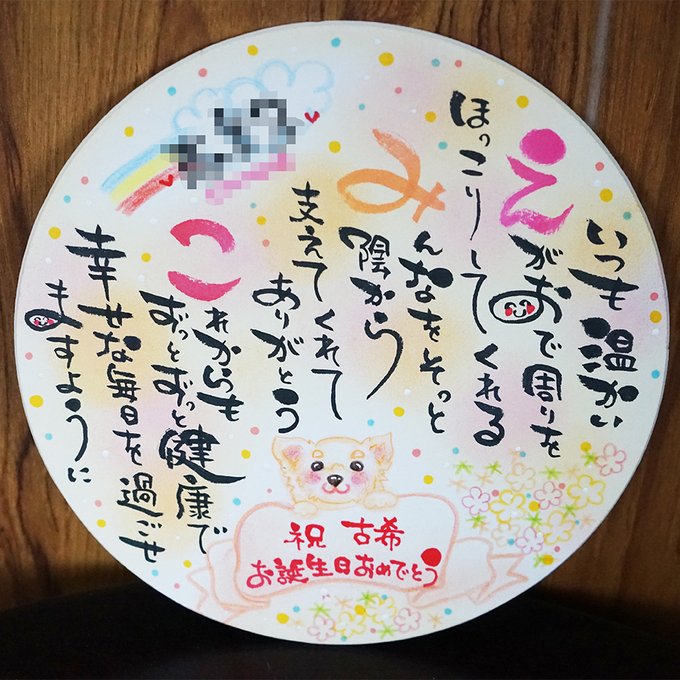 いつも温かい
えがおで周りを
ほっこりしてくれる
みんなをそっと
陰から
支えてくれて
ありがとう
これからも
ずっとずっと健康で
幸せな毎日を過ごせ
ますように
祝 古希
お誕生日おめでとう